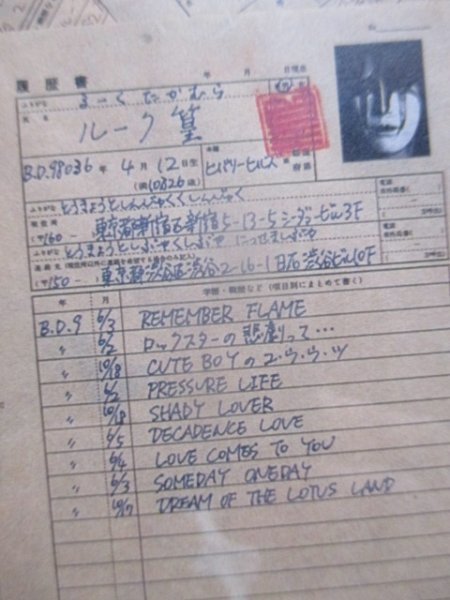 履歴書 年 月 日現在
ふりがな るーく たかむら
氏名 ルーク篁
B.D.98036年 4月 12日生
(満10826歳)
本籍 ビバリーヒルズ
ふりがな とうきょうとしんじゅくくしんじゅく
現住所 (〒160- 東京都新宿区新宿5-13-5シーダービル3F
ふりがな とうきょうとしぶやくしぶや にっせきしぶや
連絡先
(〒150- 東京都渋谷区渋谷2-16-1日石渋谷ビル10F
年 月 学歴・職歴など(項目別にまとめて書く)
B.D.9 6/3 REMEMBER FLAME
〃 6/2 ロックスターの悲劇って…
〃 10/18 CUTE BOYのユ・ウ・ウ・ツ
〃 6/2 PRESSURE LIFE
〃 10/18 SHADY LOVER
〃 6/5 DECADENCE LOVE
〃 6/4 LOVE COMES TO YOU
〃 6/3 SOMEDAY ONEDAY
〃 DREAM OF THE LOTUS LAND